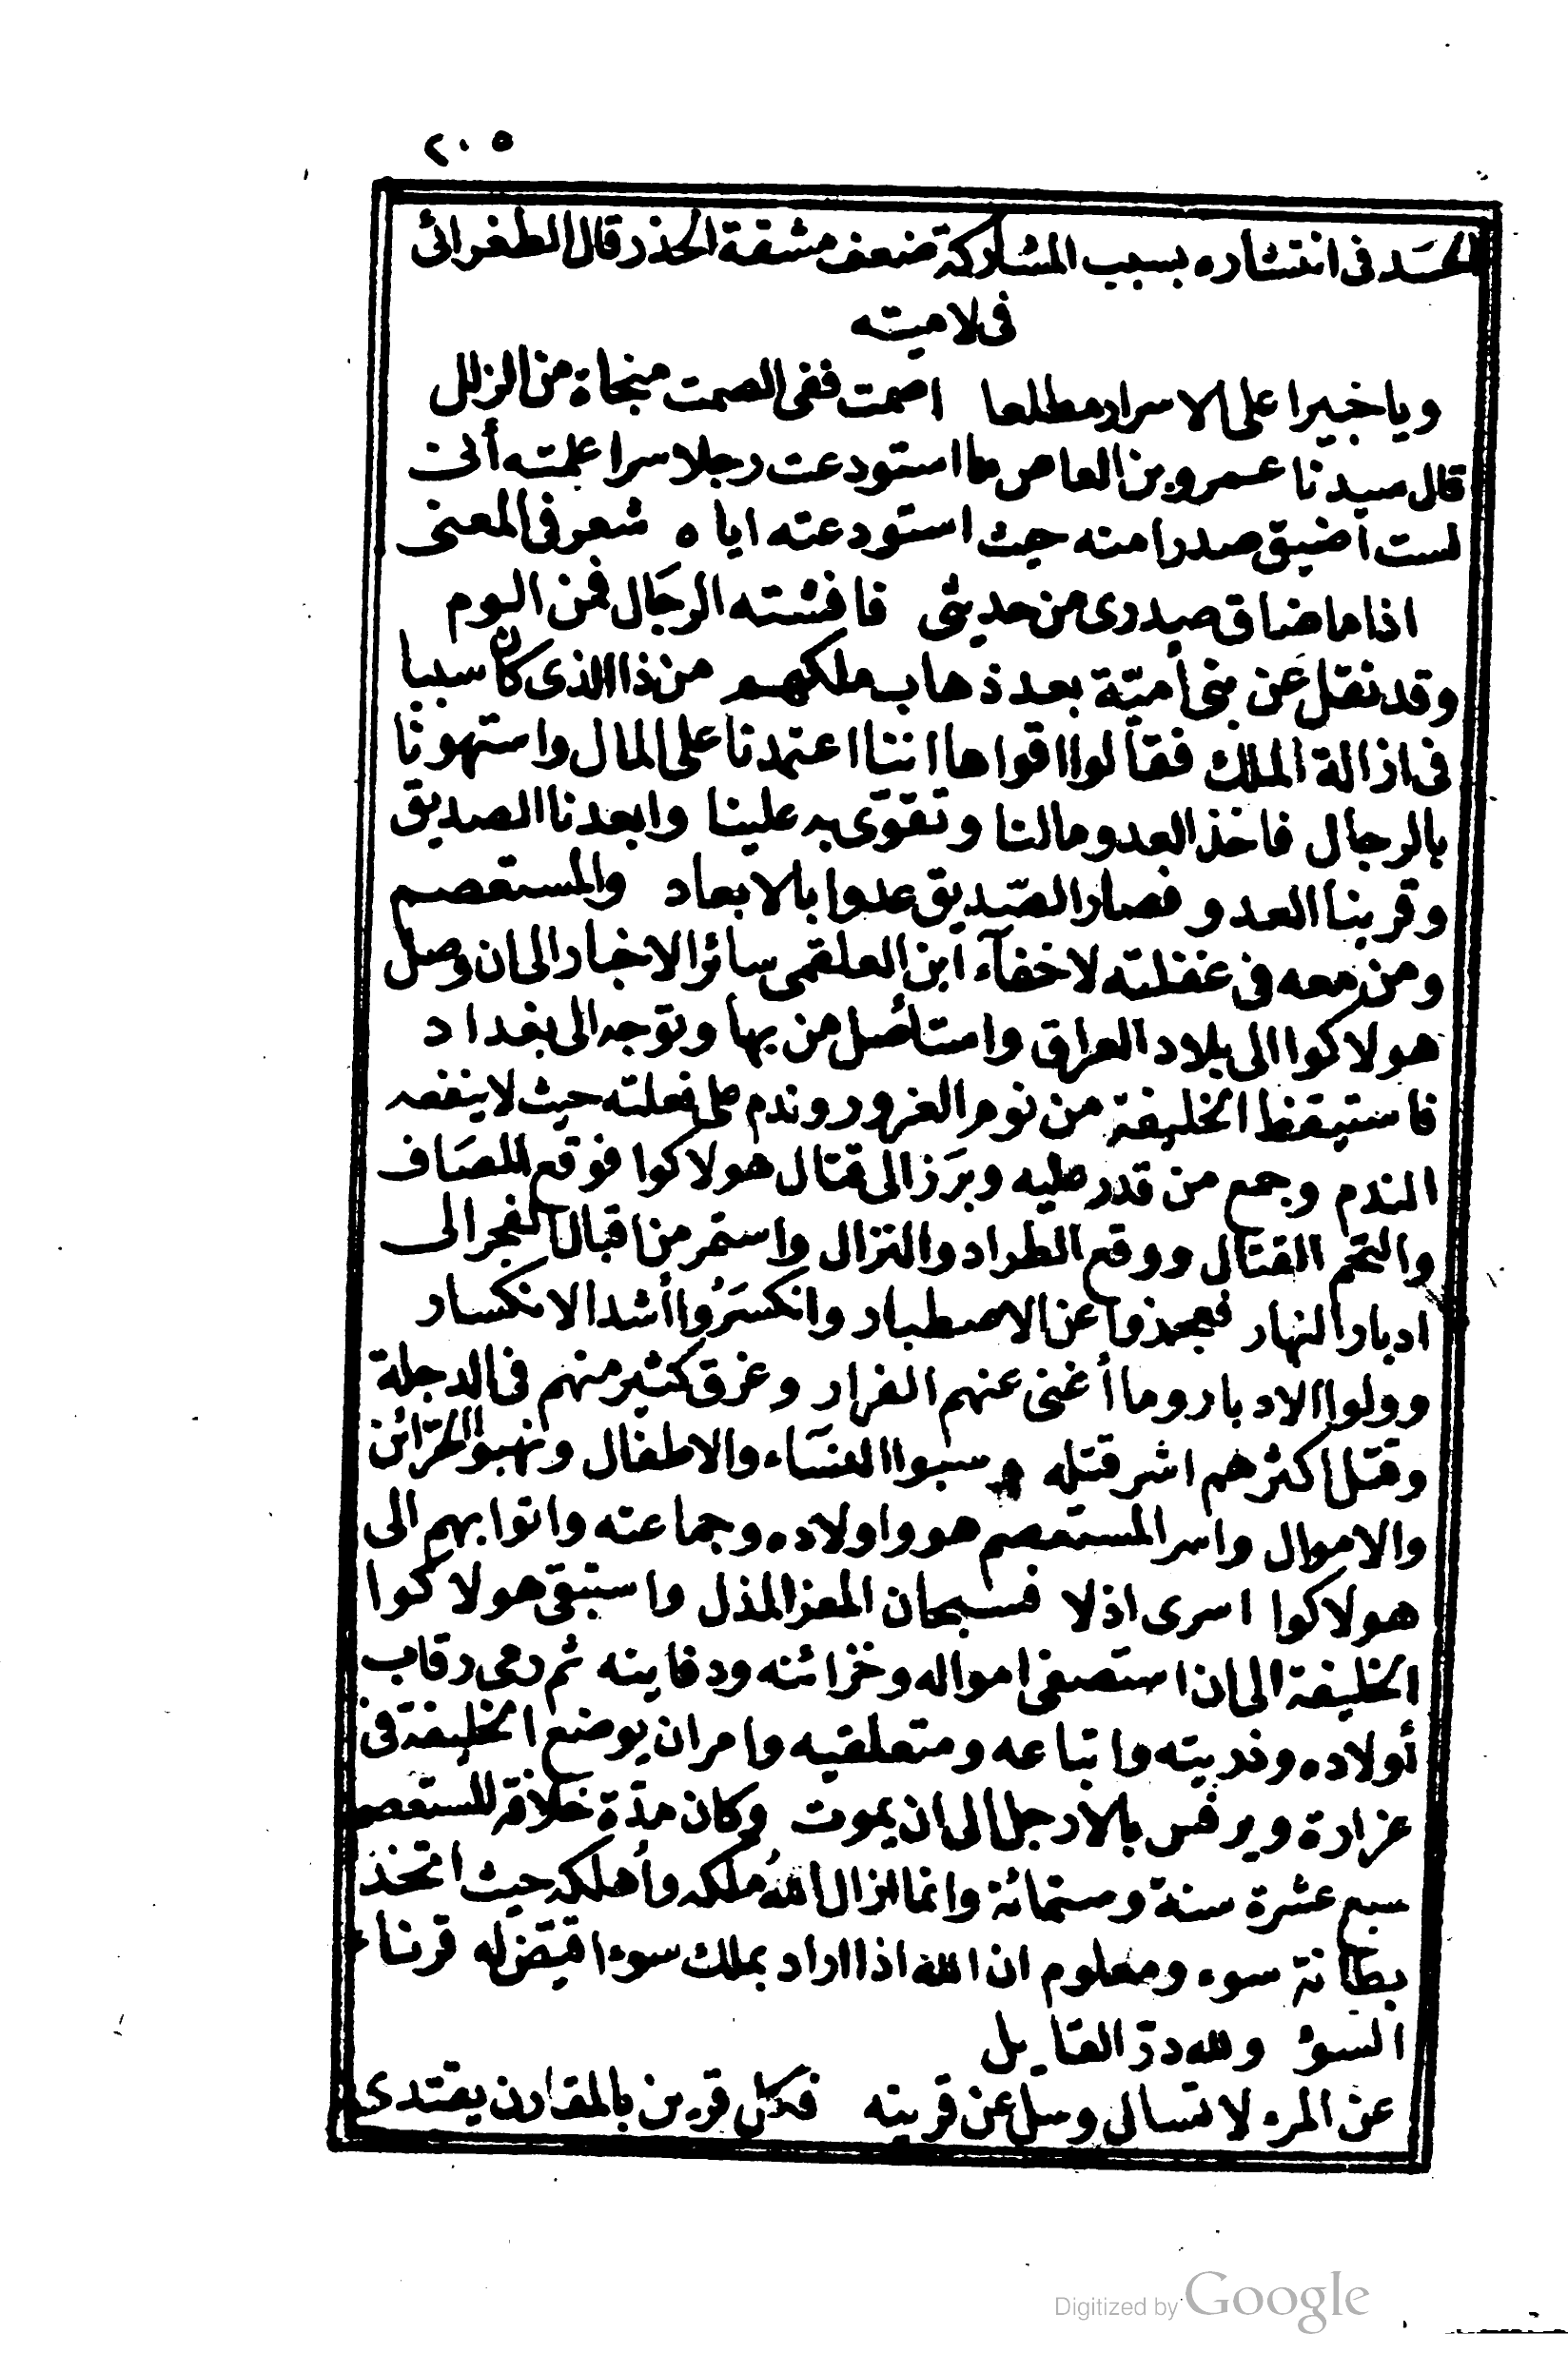 ٢٠٥
الحسَد فى انتشاره بسبب المشاركة ضعف مشقة الحذر قال الطغرائى
فى لاميته
ويا خبيرا على الاسرار مطلعا اصمت ففى الصمت منجاة من الزلل
قال سيدنا عمرو بن العاص ما استودعت رجلا سرا علمته أنى
لست اضيق صدرا منه حيث استودعته اياه شعر فى المعنى
اذا ما ضاق صدرى من حديثى فافشته الرجَال فمن الوم
وقد نقل عَن بنى أميّة بعد ذهاب ملكهم من ذا الذى كان سببا
فى ازالة الملك فقالوا اقواها اننا اعتمدنا على المال واستهونا
بالرجال فاخذ العدو مالنا وتقوّى به علينا وابعدنا الصديق
وقربنا العدو فصار الصّديق عدوا بالابعاد والمستعصم
ومن معه فى غفلته لاخفآء ابن العلقمى سائر الاخبار الى ان وصل
هولاكوا الى بلاد العراق واستأصل من بها وتوجه الى بغداد
فاستيقظ الخليفة من نوم الغرور وندم على فعلته حيث لا ينفعه
الندم وجمع من قدر عليه وبرَز الى قتال هولاكوا فوقع المصَاف
والتحم القتال ووقع الطراد والنزال واستمر من اقبال الفجر الى
ادبار النهار فعجزوا عن الاصطبار وانكسَرُوا أشد الانكسار
وولوا الادبار وما أغنى عنهم الفرار وغرق كثير منهم فى الدجلة
وقتل اكثرهم اشر قتله وسبوا النسَاء والاطفال ونهبوا الخزائن
والاموال واسر المستعصم هو واولاده وجماعته واتوا بهم الى
هولاكوا اسرى اذلا فسبحان المعز المذل واستبقى هولاكوا
الخليفة الى ان استصفى امواله وخزائنه ودفاينه ثم رمى رقاب
أولاده وذريته واتباعه ومتعلقيه وامر ان يوضع الخليفة فى
غزارة ويرفس بالارجل الى ان يموت وكان مدّة خلافة المستعصم
سبع عشرة سنة وستمائة وانما ازال اللهُ ملكه وأهلكه حيث اتخذ
بطانة سوء ومعلوم ان الله اذا اراد بملك سوءا قيض له قرناء
السّوء ولله درّ القايل
عن المرء لا تسال وسل عن قرينه فكل قرين بالمقارن يقتدى
Digitized by Google